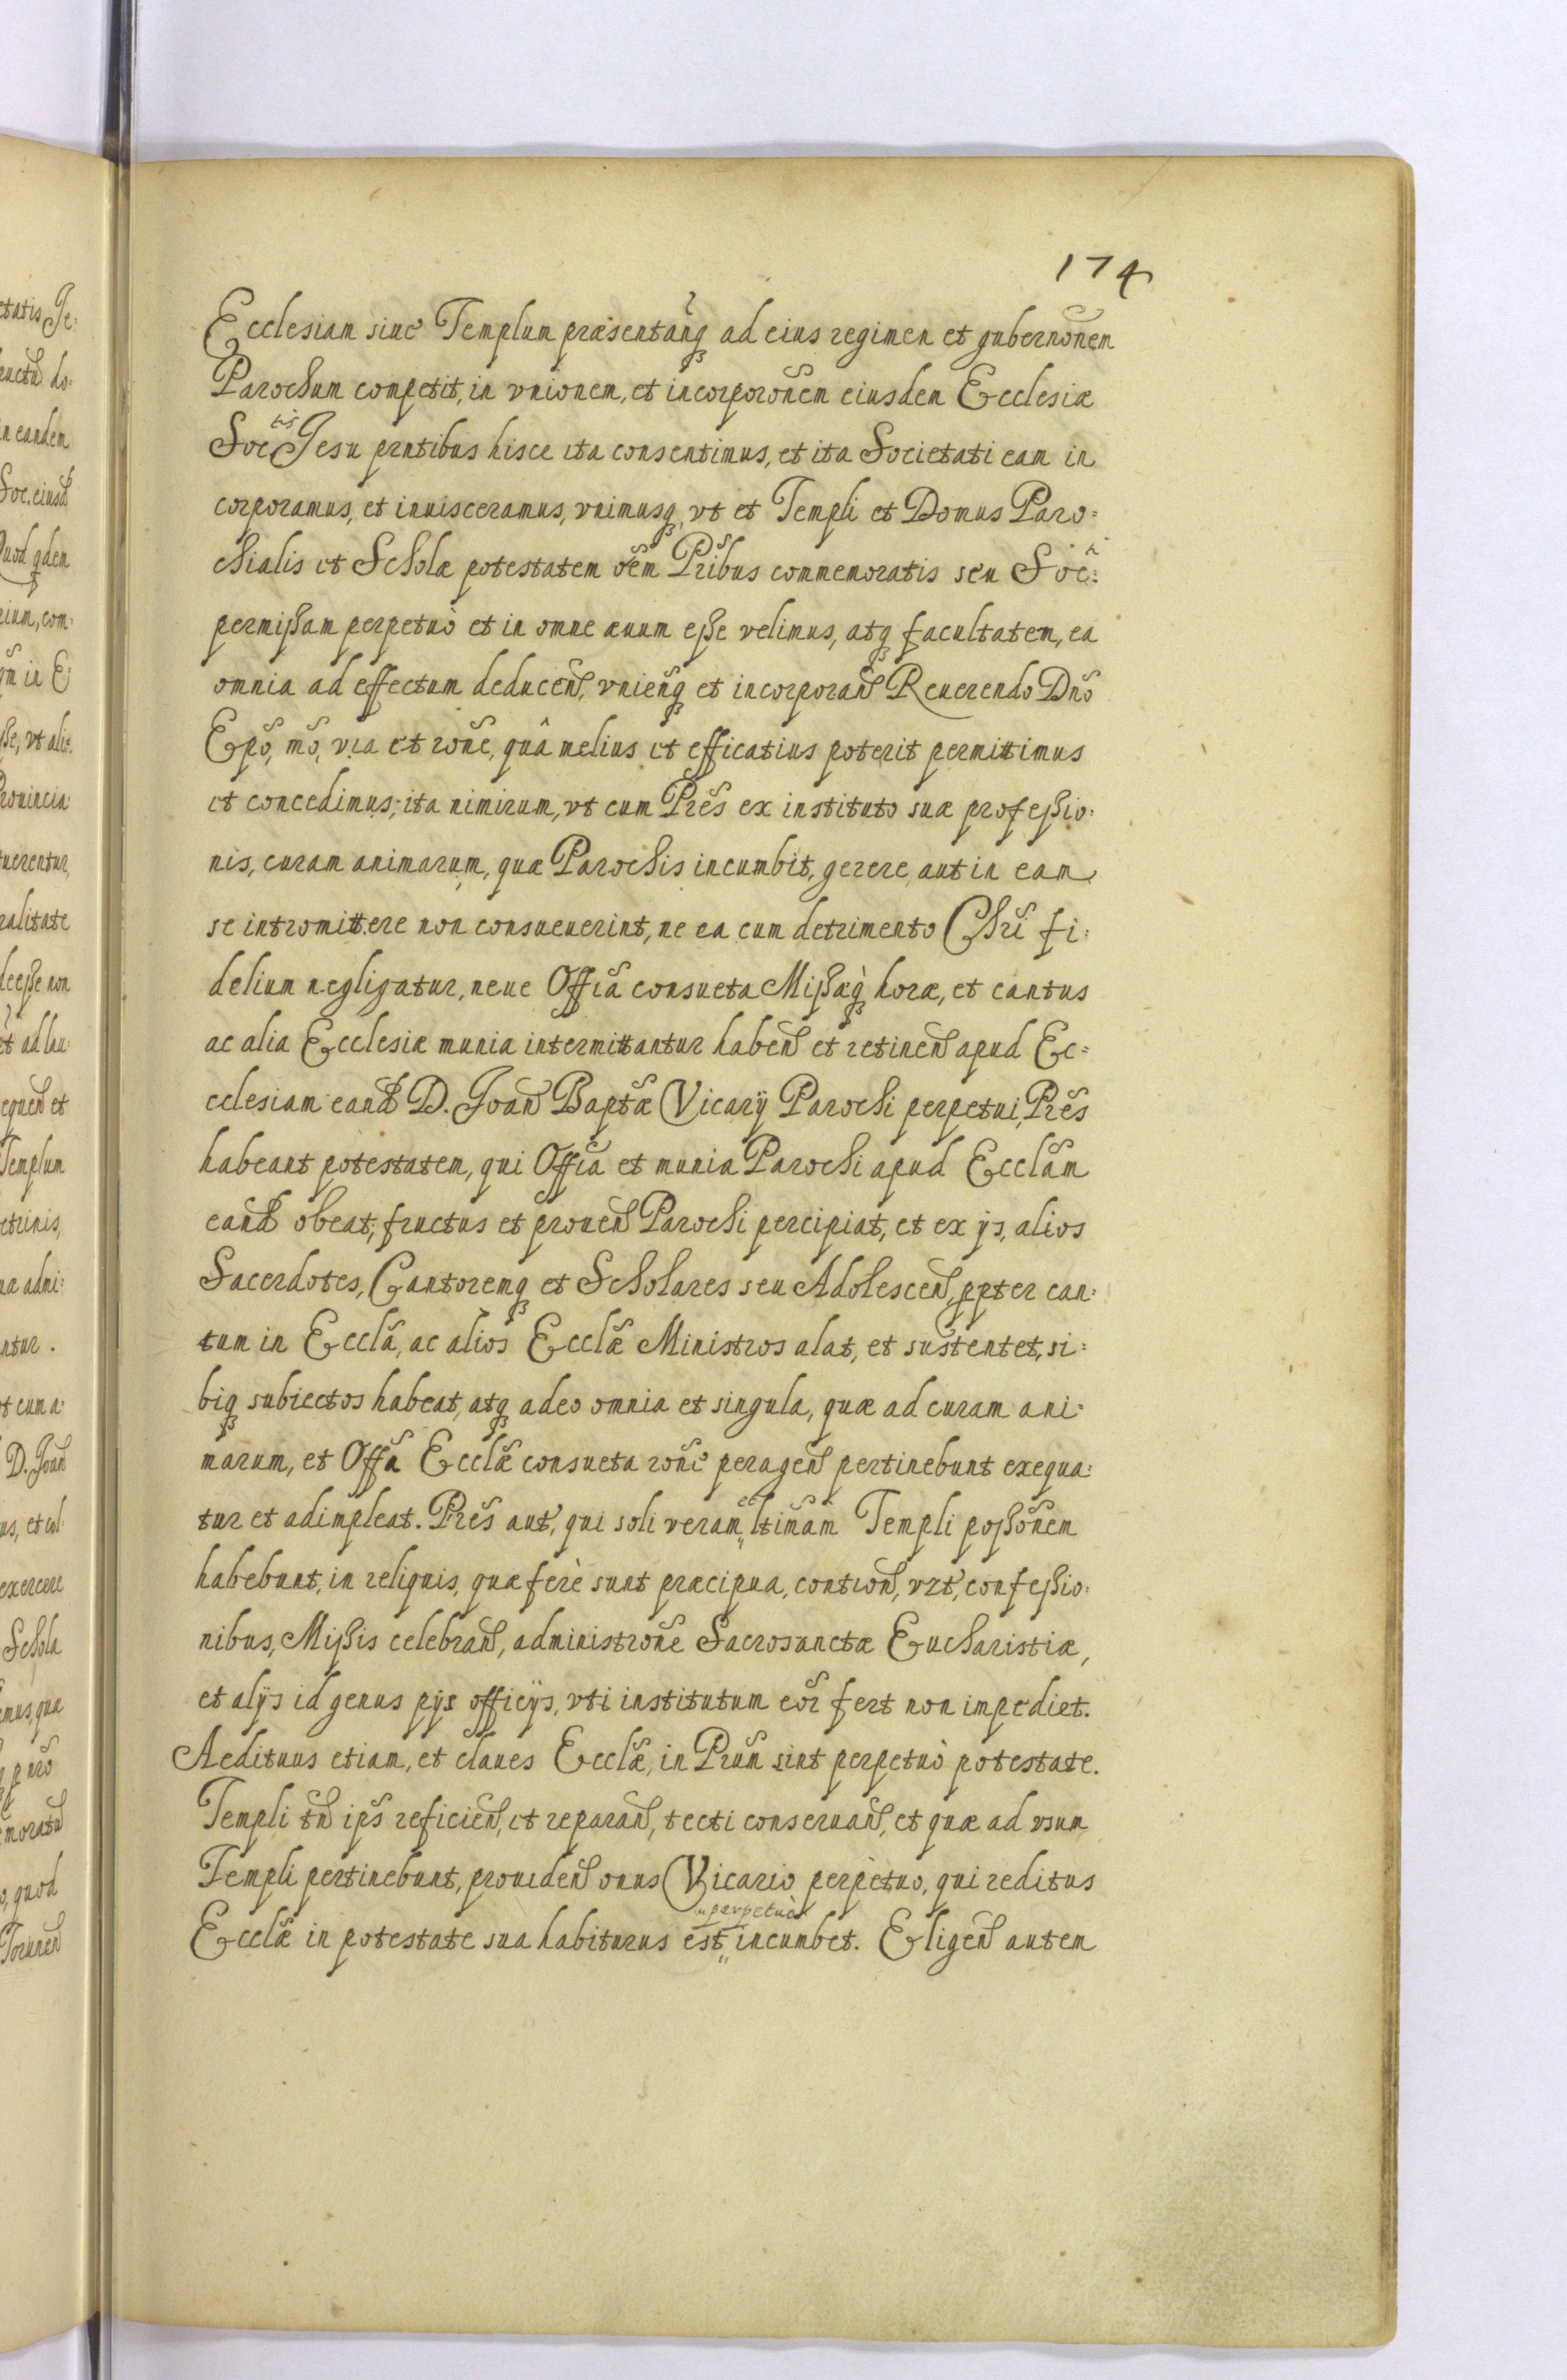 174
Ecclesiam siue Templum præsentan̄q̃ ad eius regimen et gubernõnem
Parochum competit, in vnionem, et incorporõnem eiusdem Ecclesiæ
Soctis Jesu pr̃ntibus hisce ita consentimus, et ita Societati eam in
corporamus, et inuisceramus, vnimusq̃, vt et Templi et Domus Paro=
chialis et Scholæ potestatem oẽm Pr̃ibus commemoratis seu Soc:
permissam perpetuò et in omne æuum esse velimus, atq̃ facultatem, ea
omnia ad effectum deducen̄, vnien̄q̃ et incorporan̄ Reuerendo Dño
Ep̃o, m̃o, via et rõne, quâ melius et efficatius poterit permittimus
et concedimus; ita nimirum, vt cum Pr̃es ex instituto suæ professio:
nis, curam animarum, quæ Parochis incumbit, gerere, aut in eam
se intromittere non consueuerint, ne ea cum detrimento Chr̃i fi:
delium negligatur, neue Offi̅a consueta Missæq̃ horæ, et cantus
ac alia Ecclesiæ munia intermittantur haben̄ et retinen̄ apud Ec=
cclesiam eand̃ D. Joan̄ Bapt̃æ Vicarij Parochi perpetui, Pr̃es
habeant potestatem, qui Offi̅a et munia Parochi apud Eccl̃am
eand̃ obeat, fructus et prouen̄ Parochi percipiat, et ex ijs, alios
Sacerdotes, Cantoremq̃ et Scholares seu Adolescen̄, ppter can:
tum in Eccl̃a, ac alios Eccl̃æ Ministros alat, et sustentet, si:
biq̃ subiectos habeat, atq̃ adeo omnia et singula, quæ ad curam ani:
marum, et Off̃a Eccl̃æ consueta rõne peragen̄ pertinebunt exequa:
tur et adimpleat. Pr̃es aut̃, qui soli veram et ltimam Templi possõnem
habebunt, in reliquis, quæ ferè sunt præcipua, contion̄, vz̃t, confessio:
nibus, Missis celebran̄, administrõne Sacrosanctæ Eucharistiæ,
et alijs id genus pijs officijs, vti institutum eor̃ fert non impediet.
Aedituus etiam, et claues Eccl̃æ, in Pr̃um sint perpetuò potestate.
Templi tñ ip̃s reficien̄, et reparan̄, tecti conseruan̄, et quæ ad vsum
Templi pertinebunt, prouiden̄ onus Vicario perpetuo, qui reditus
Eccl̃æ in potestate sua habiturus est perpetuò incumbet. Eligen̄ autem